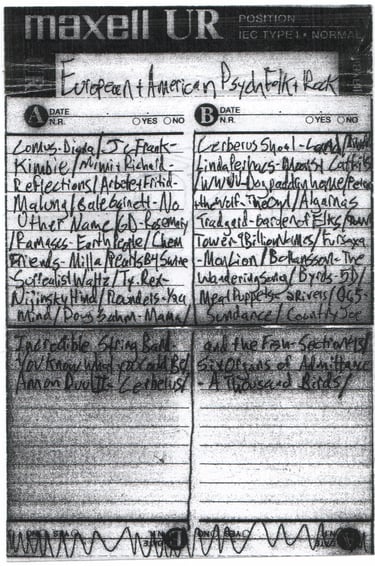 maxell UR POSITION
IEC TYPE I • NORMAL
European + American Psych Folk + Rock
A DATE
N.R. YES NO
Comus-Diana/J.C. Frank-
Kimbie/Mimi + Richard-
Reflections/Arbete + Fritid-
Malung/Gale Garnett-No
Other Name/GD-Rosemary
/Ramases-Earth People/Chem
Friends-Milla Pearls B4 Swine
Surrealist Waltz/Ty. Rex-
Nijinsky Hind/Rounders-Yaa
Mind/Doug Sahm-Mama/
Incredible String Band-
You Know What you Could Be/
Amon Duul II-Cerberus/
B DATE
N.R. YES NO
Cerberus Shoal-
Linda Perhacs-
/WWW-Dog paddin home/Peter
the Wolf-The Owl/Algarnas
Tradgard-Garden of Elks/
Tower-1Billion Names/Fursaxa
-Mon Lion/Bo Hansson-The
Wandering Song/Byrds-5D/
Meat Puppets-2 Rivers/
Sundance/Country Joe
and the Fish-Section 43/
Six Organs of Admittance
-A Thousand Birds/